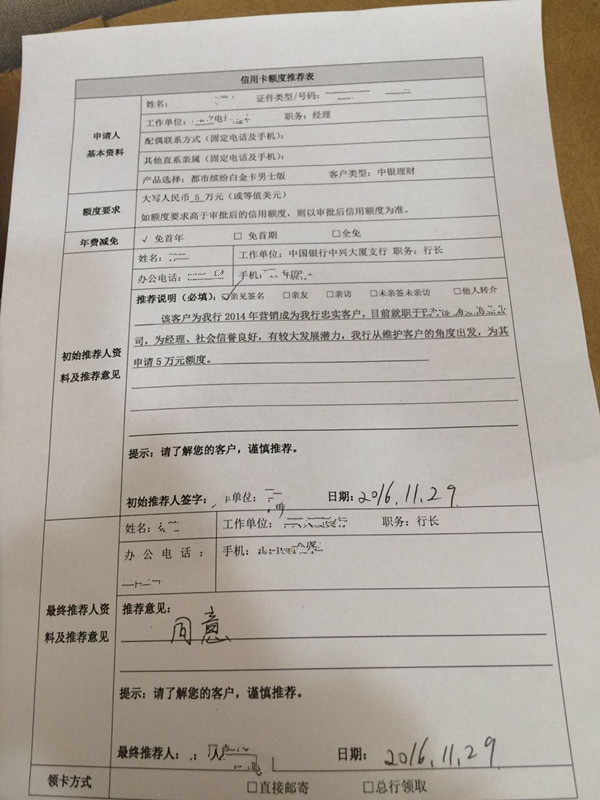 信用卡额度推荐表
申请人
基本资料
姓名： 证件类型/号码：
工作单位： 电 职务：经理
配偶联系方式（固定电话及手机）：
其他直系亲属（固定电话及手机）：
产品选择：都市缤纷白金卡男士版 客户类型：中银理财
额度要求
大写人民币 5 万元（或等值美元）
如额度要求高于审批后的信用额度，则以审批后信用额度为准。
年费减免
√ 免首年 □ 免首期 □全免
初始推荐人资
料及推荐意见
姓名： 工作单位：中国银行中兴大厦支行 职务：行长
办公电话： 手机：
推荐说明（必填）：□亲见签名 □亲友 □亲访 □未亲签未亲访 □他人转介
该客户为我行 2014 年营销成为我行忠实客户，目前就职于
司，为经理、社会信誉良好，有较大发展潜力，我行从维护客户的角度出发，为其
申请 5 万元额度。
提示：请了解您的客户，谨慎推荐。
初始推荐人签字： 单位： 日期：2016.11.29
最终推荐人资
料及推荐意见
姓名： 工作单位： 职务：行长
办公电话： 手机：
推荐意见：
同意
提示：请了解您的客户，谨慎推荐。
最终推荐人： 日期：2016.11.29
领卡方式
□直接邮寄 □总行领取